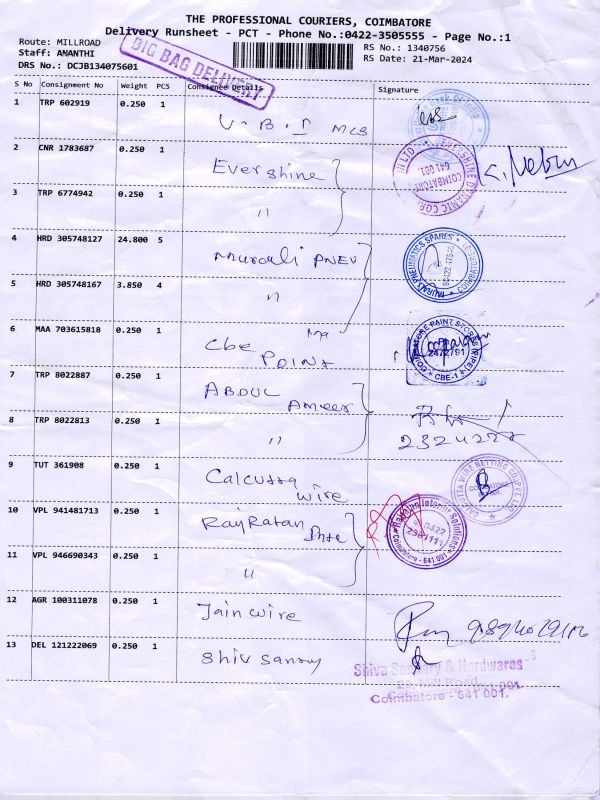 THE PROFESSIONAL COURIERS, COIMBATORE
Delivery Runsheet - PCT - Phone No.:0422-3505555 - Page No.:1
Route: MILLROAD
Staff: ANANTHI
DRS No.: DCJB134075601
BIG BAG DELIVERY
RS No.: 1340756
RS Date: 21-Mar-2024
S No Consignment No Weight PCS Consignee Details Signature
1 TRP 602919 0.250 1 U.B.I MCS
2 CNR 1783687 0.250 1 Evershine
3 TRP 6774942 0.250 1 "
4 HRD 305748127 24.800 5 Murali PNEU
5 HRD 305748167 3.850 4 "
6 MAA 703615818 0.250 1 Cbe POINT
7 TRP 8022887 0.250 1 ABDUL Ameer
8 TRP 8022813 0.250 1 "
9 TUT 361908 0.250 1 Calcutta wire
10 VPL 941481713 0.250 1 RajRatan Inte
11 VPL 946690343 0.250 1 "
12 AGR 100311078 0.250 1 Jain wire
13 DEL 121222069 0.250 1 Shiv Sanary
EVERSHINE DYNAMIC
COIMBATORE
641 001.
MURALI PNEUMATICS SPARES
COIMBATORE PAINT STORES
2472791
CBE-1
WIRE NETTING
COIMBATORE
Interior Solutions
0422
2381111
Coimbatore - 641 001
Shiva Sanitary & Hardwares
Coimbatore - 641 001.